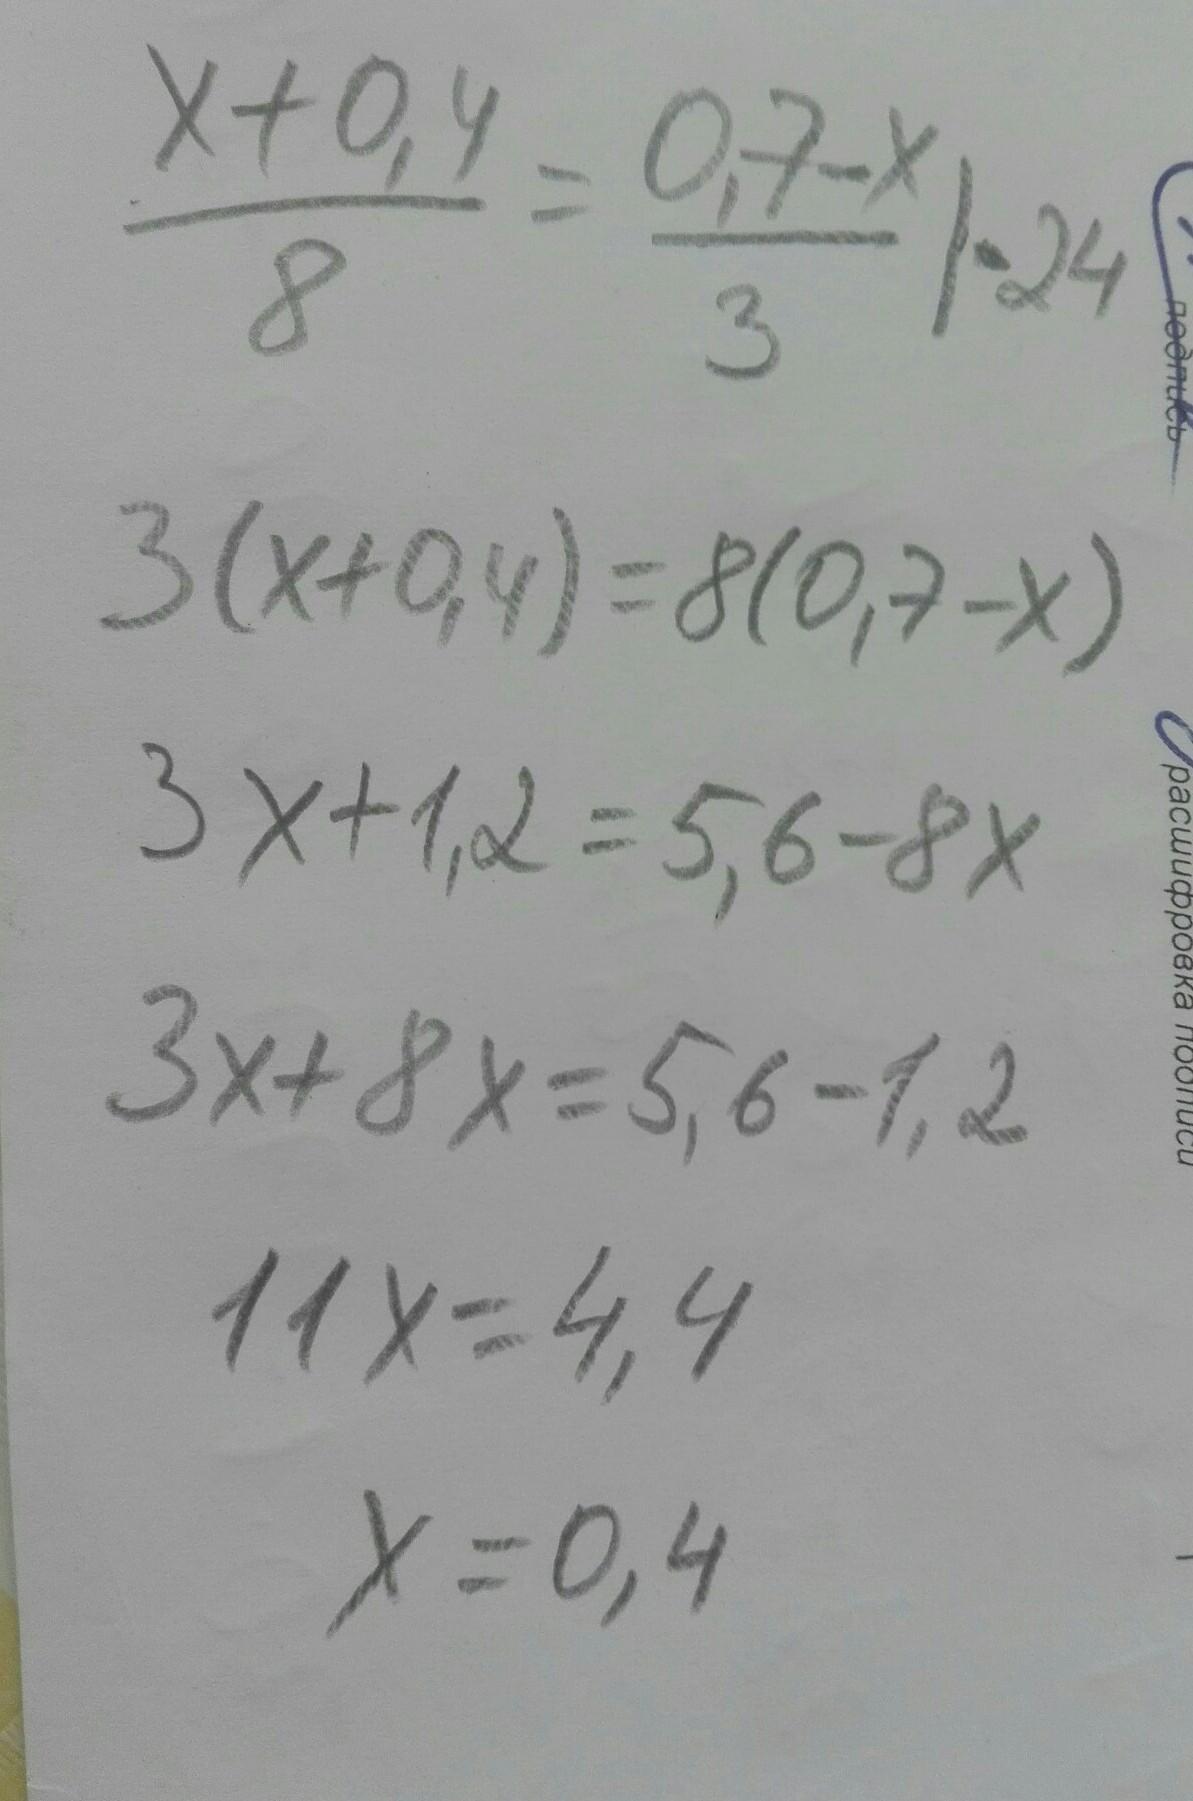 x+0,4
8
=
0,7-x
3
|·24
3(x+0,4)=8(0,7-x)
3x+1,2=5,6-8x
3x+8x=5,6-1,2
11x=4,4
x=0,4
подпись
расшифровка подписи